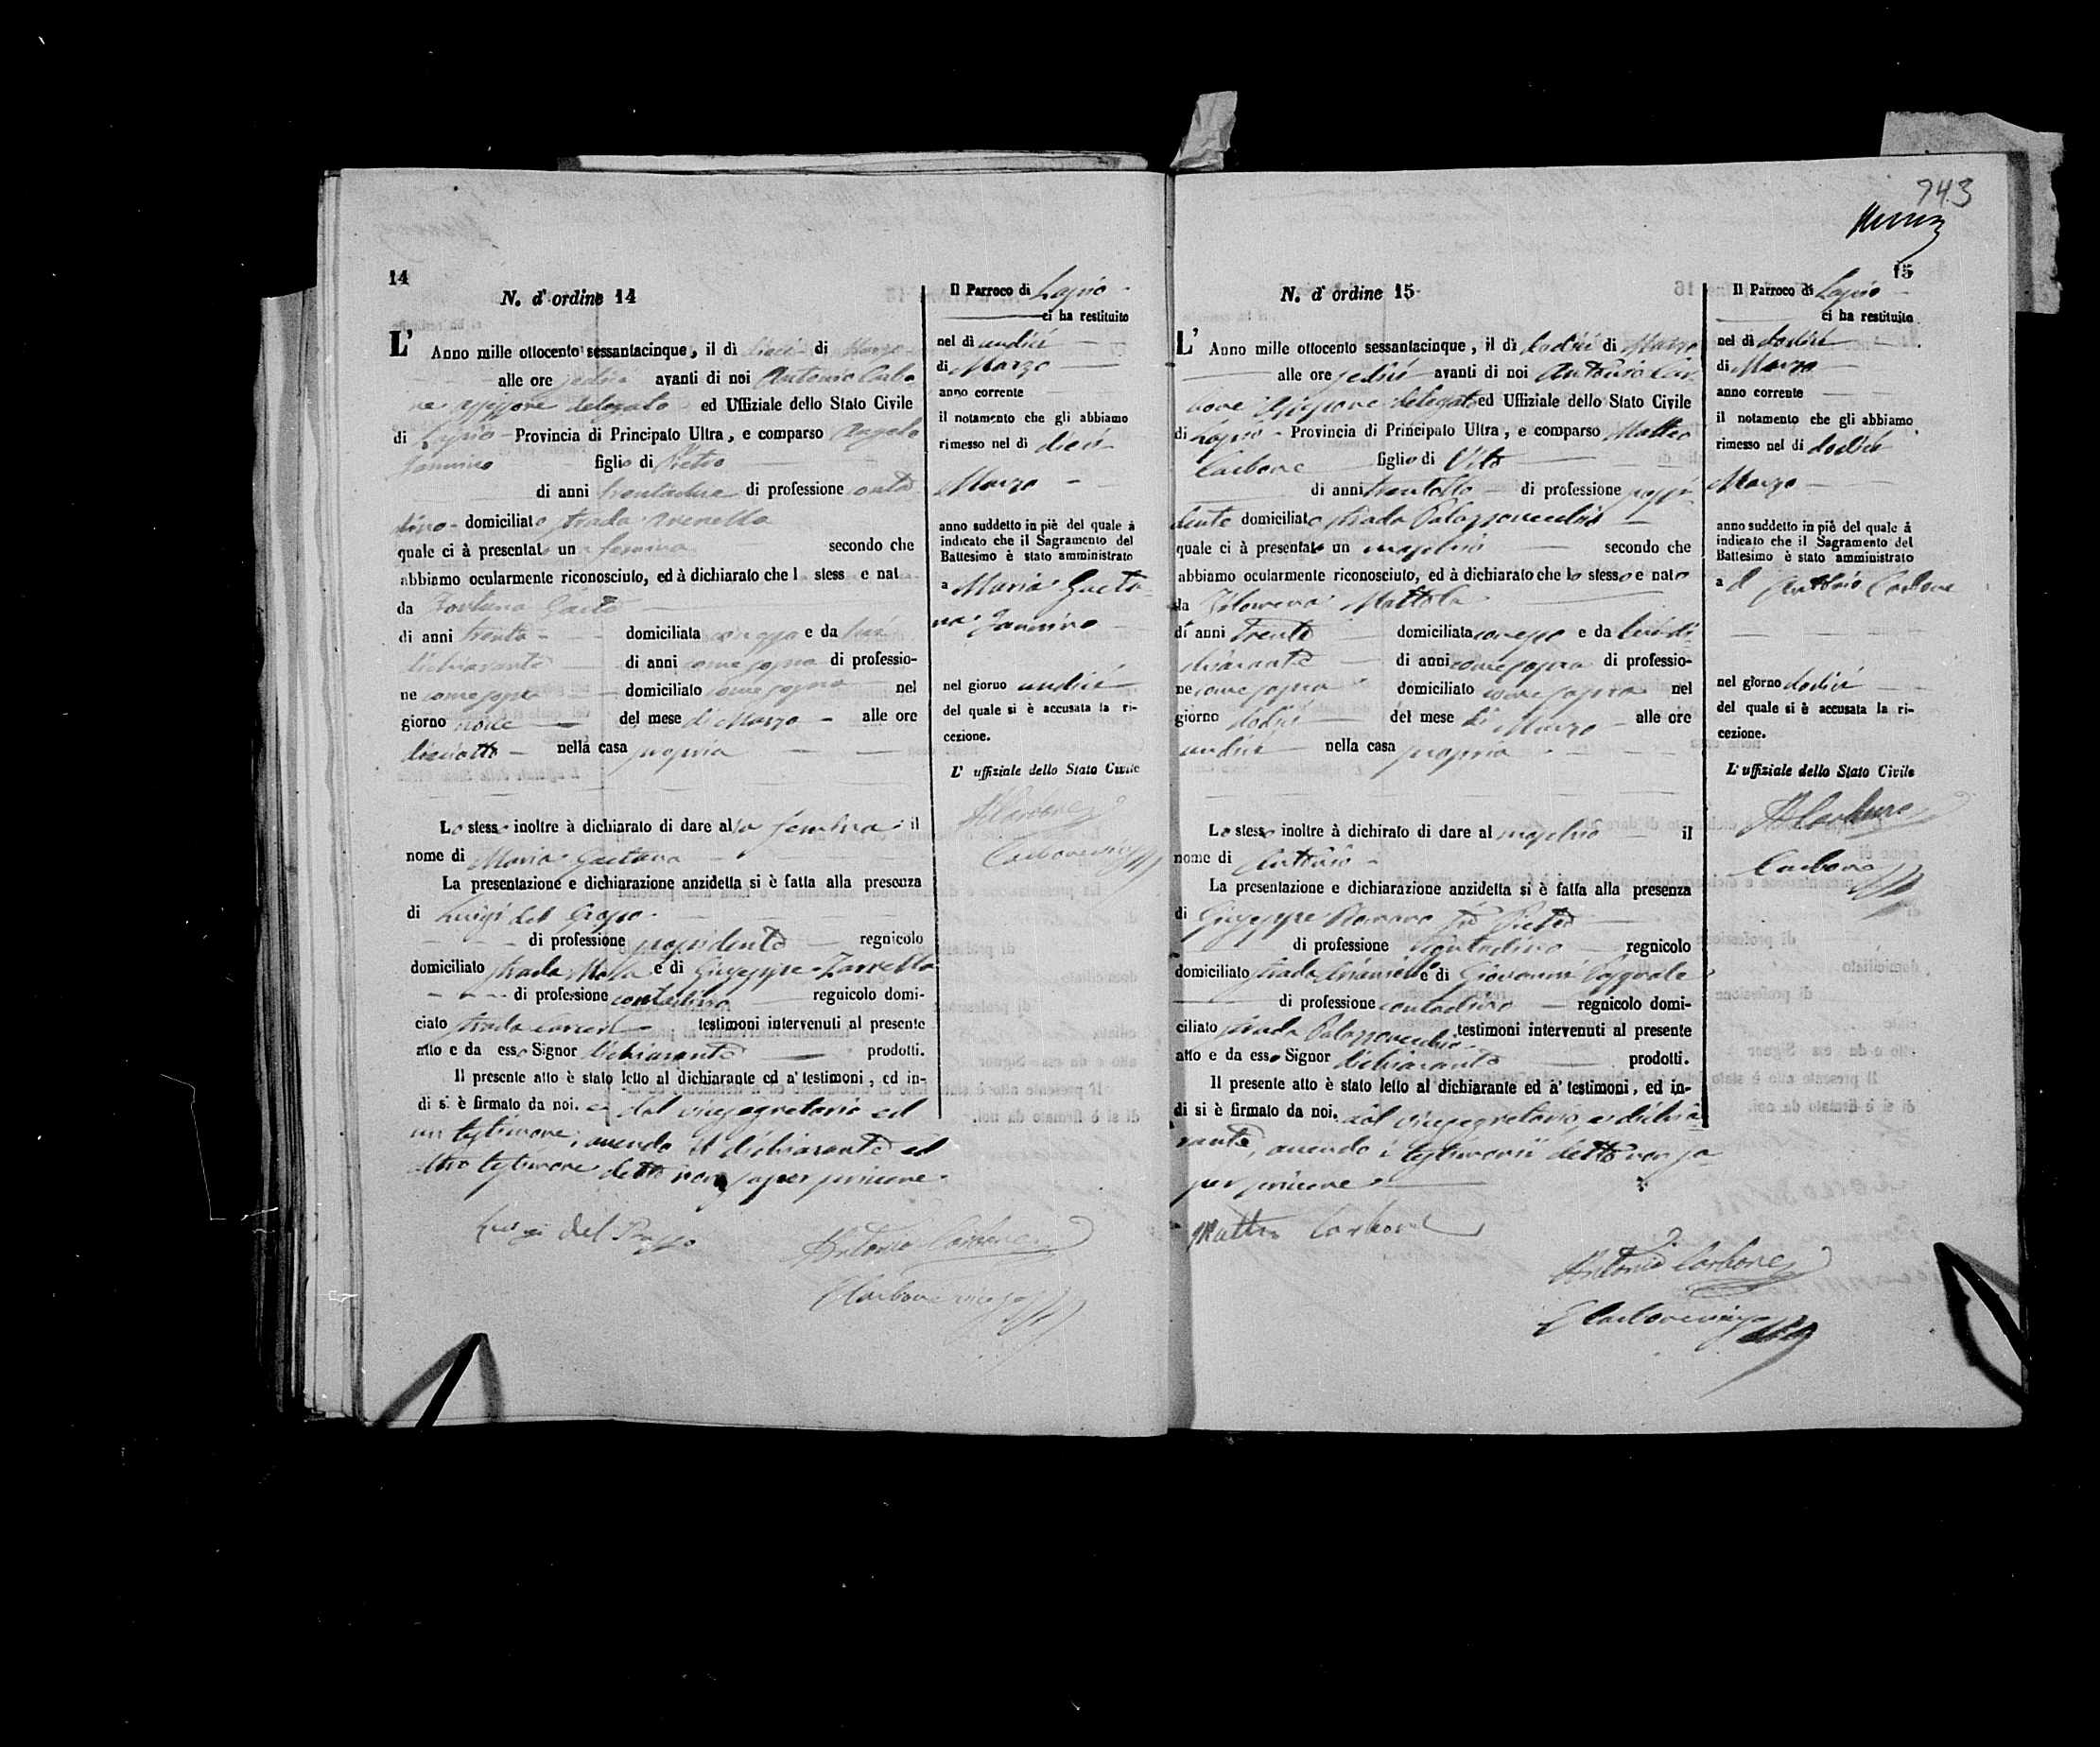 14
N. d'ordine 14
L'Anno mille ottocento sessantacinque, il dì dieci di Marzo
alle ore sedici avanti di noi Antonio Carbo
ne assessore delegato ed Uffiziale dello Stato Civile
di Lapio Provincia di Principato Ultra, e comparso Angelo
figlio di Pietro
di anni di professione conta
dino domiciliato strada
quale ci à presentato una femina secondo che
abbiamo ocularmente riconosciuto, ed à dichiarato che l stess e nat
da Gaeta
di anni trenta domiciliata e da lui
dichiarante di anni come sopra di professio-
ne come sopra domiciliato come sopra nel
giorno nove del mese di Marzo alle ore
dieciotto nella casa propria
Lo stesso inoltre à dichiarato di dare alla femina il
nome di Maria Gaetana
La presentazione e dichiarazione anzidetta si è fatta alla presenza
di Luigi del Grosso
di professione possidente regnicolo
domiciliato strada e di Giuseppe Zarrella
di professione contadino regnicolo domi-
ciato strada testimoni intervenuti al presente
atto e da esso Signor dichiarante prodotti.
Il presente atto è stato letto al dichiarante ed a' testimoni, ed in-
di si è firmato da noi. e dal vicesegretario ed
un testimone, avendo il dichiarante ed
altro testimone detto non saper scrivere
Luigi del Grosso
Antonio Carbone
Carbone
Il Parroco di Lapio
ci ha restituito
nel dì undici
di Marzo
anno corrente
il notamento che gli abbiamo
rimesso nel dì dieci
Marzo
anno suddetto in piè del quale à
indicato che il Sagramento del
Battesimo è stato amministrato
a Maria Gaeta
na
nel giorno undici
del quale si è accusata la ri-
cezione.
L' uffiziale dello Stato Civile
A Carbone
Carbone
743
15
N. d'ordine 15
L'Anno mille ottocento sessantacinque, il dì dodici di Marzo
alle ore sedici avanti di noi Antonio Car
bone assessore delegato ed Uffiziale dello Stato Civile
di Lapio Provincia di Principato Ultra, e comparso Matteo
Carbone figlio di Vito
di anni trentotto di professione possi
dente domiciliato strada Palazzovecchio
quale ci à presentato un maschio secondo che
abbiamo ocularmente riconosciuto, ed à dichiarato che lo stesso e nato
da Filomena Mattola
di anni trenta domiciliata e da lui di
chiarante di anni come sopra di professio-
ne come sopra domiciliato come sopra nel
giorno dodici del mese di Marzo alle ore
undici nella casa propria
Lo stesso inoltre à dichirato di dare al maschio il
nome di Antonio
La presentazione e dichiarazione anzidetta si è fatta alla presenza
di Giuseppe Romano fu Pietro
di professione contadino regnicolo
domiciliato strada e di Giovanni Pasquale
di professione contadino regnicolo domi-
ciliato strada Palazzovecchio testimoni intervenuti al presente
atto e da esso Signor dichiarante prodotti.
Il presente atto è stato letto al dichiarante ed a' testimoni, ed in-
di si è firmato da noi. dal vicesegretario, e dichia
rante, avendo i testimonii detto non sa
per scrivere
Matteo Carbone
Antonio Carbone
Carbone
Il Parroco di Lapio
ci ha restituito
nel dì dodici
di Marzo
anno corrente
il notamento che gli abbiamo
rimesso nel dì dodici
Marzo
anno suddetto in piè del quale à
indicato che il Sagramento del
Battesimo è stato amministrato
a Antonio Carbone
nel giorno dodici
del quale si è accusata la ri-
cezione.
L' uffiziale dello Stato Civile
A Carbone
Carbone